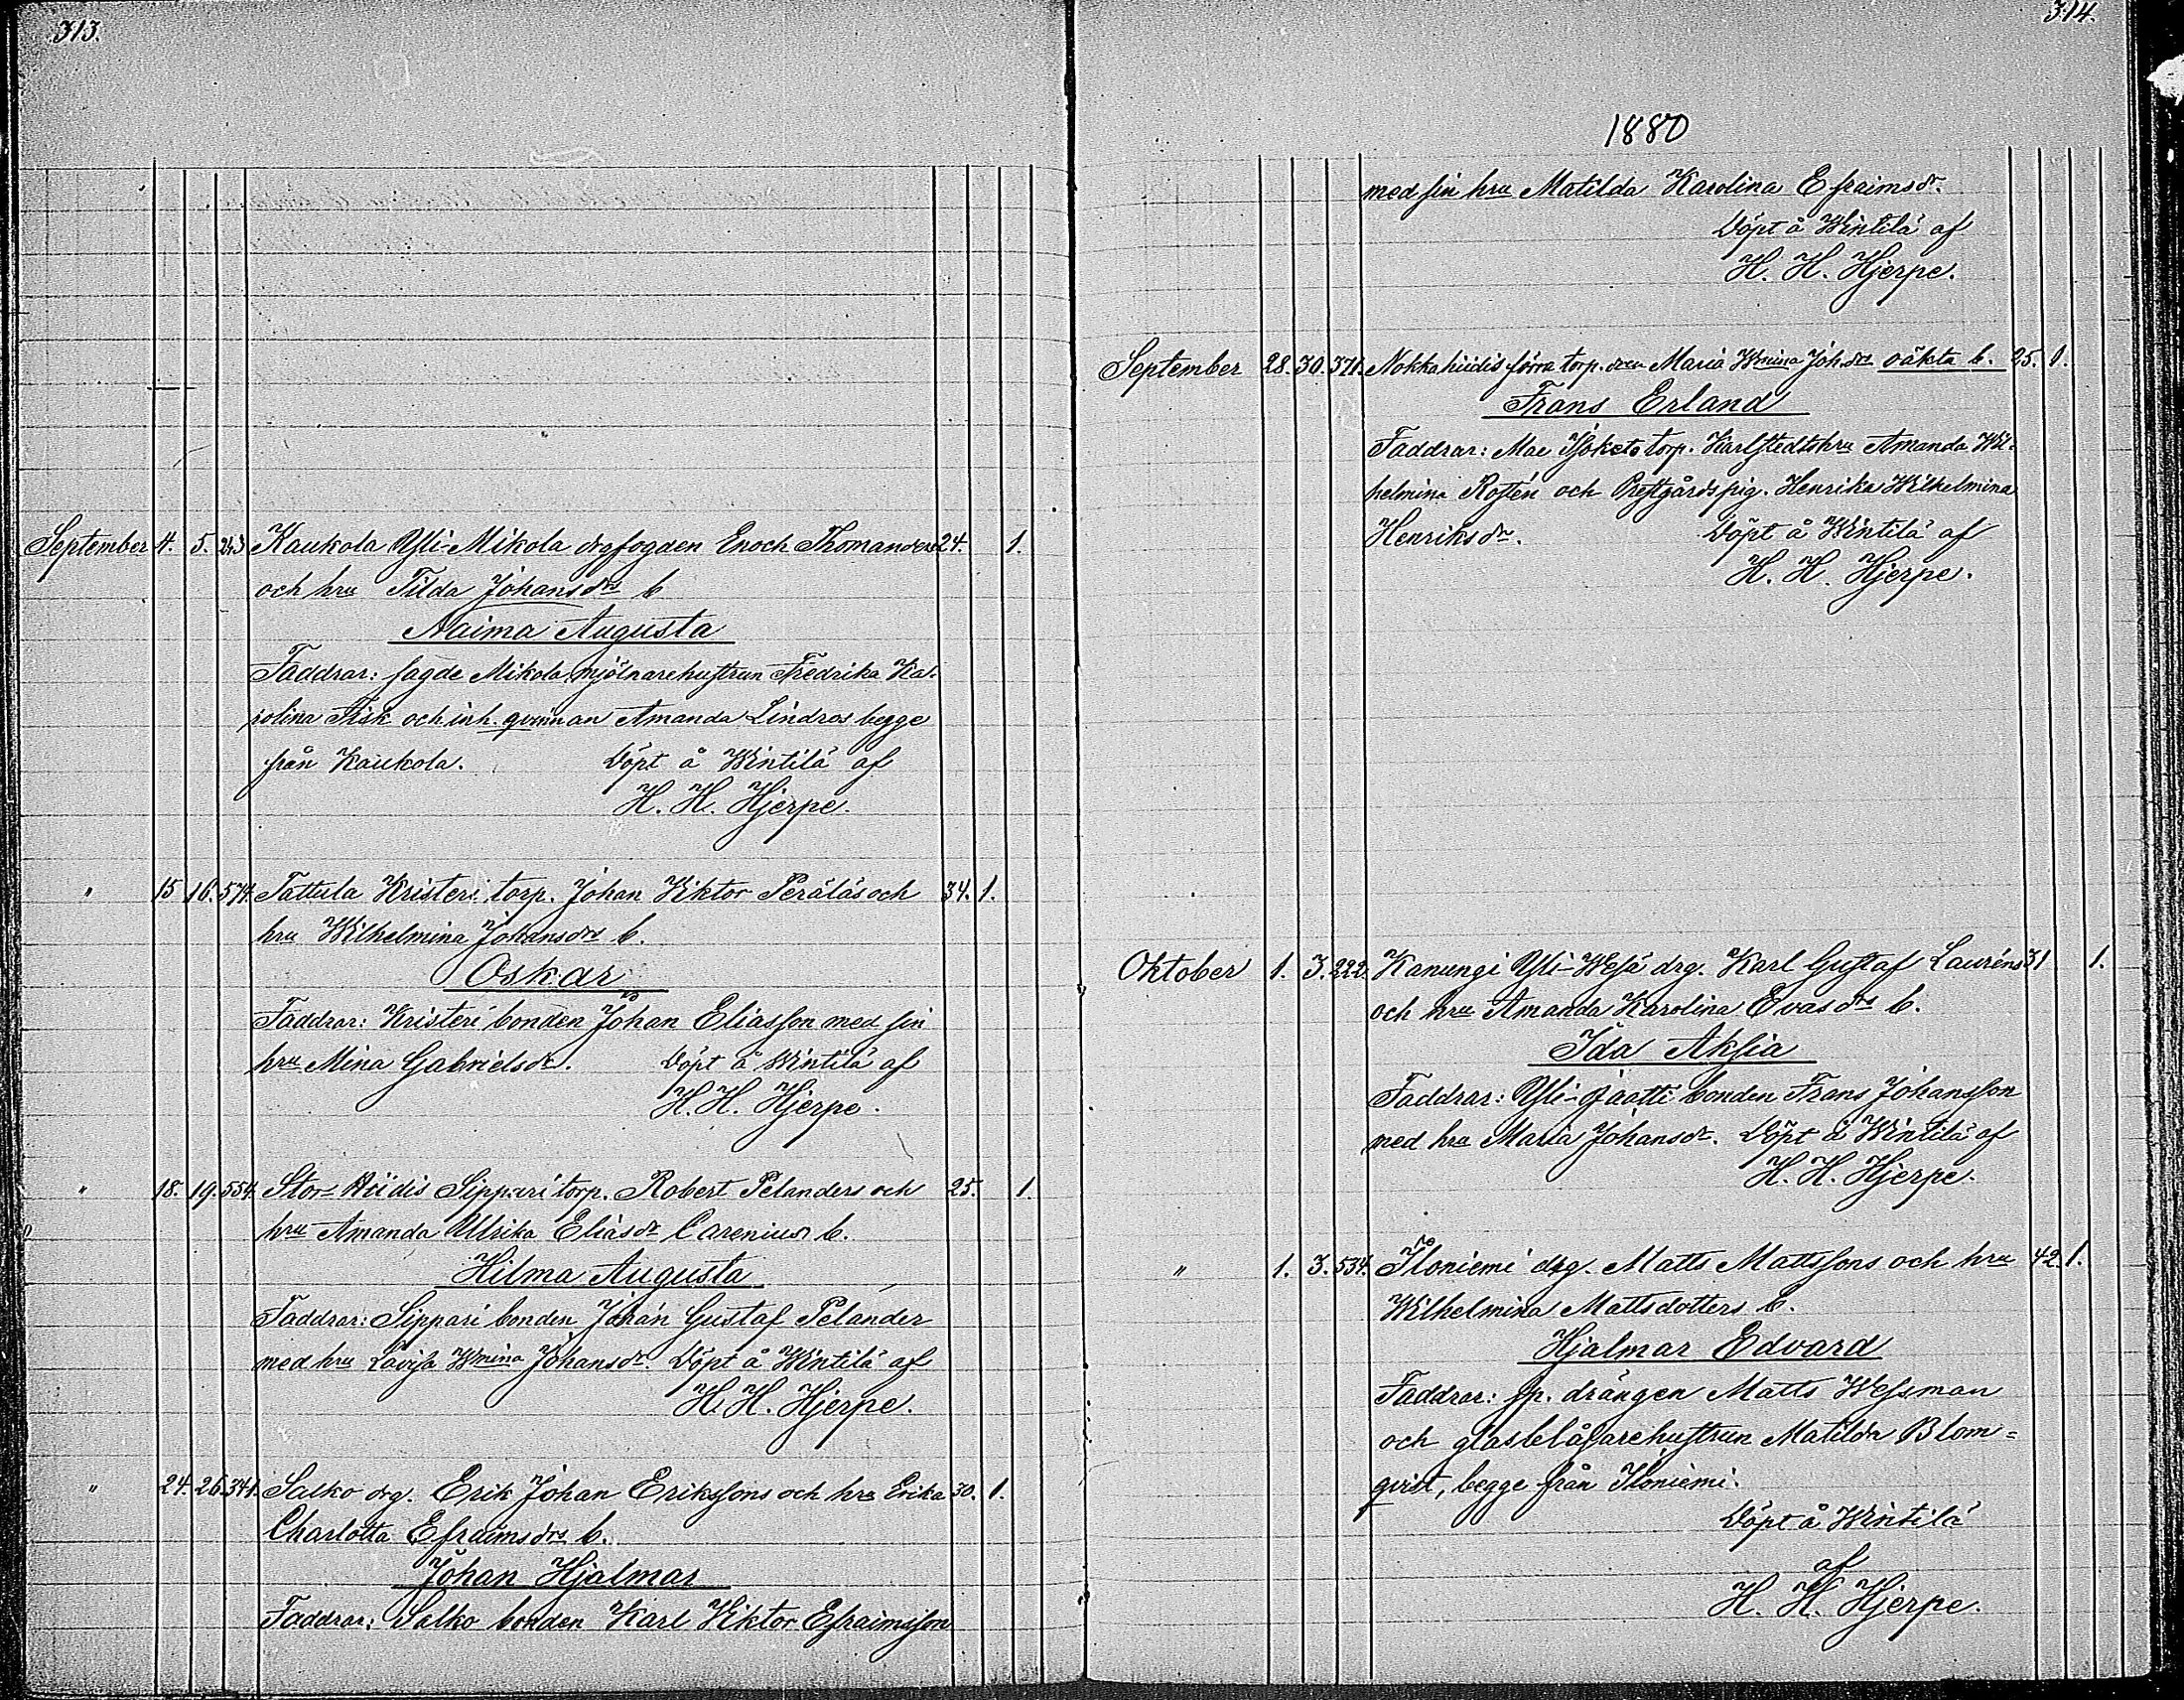 313.
September 4. 5. 243 Kaukola Yli-Mikola drgfogden Enoch Thomanders 24. 1.
och hru Tilda Johansdrs b
Naima Augusta
Faddrar: sagde Mikola mjölnarehustrun Fredrika Ka-
rolina Fisk och inh. qvinnan Amanda Lindros begge
från Kaukola. Döpt å Wintilä af
H. H. Hjerpe.
" 15 16. 574. Tattula Kristeri torp. Johan Viktor Peräläs och 34. 1.
hru Wilhelmina Johansdrs b.
Oskar
Faddrar: Kristeri bonden Johan Eliasson med sin
hru Mina Gabrielsdr. Döpt å Wintilä af
H. H. Hjerpe.
" 18. 19. 554. Stor-Hiidis Sippari torp. Robert Pelanders och 25. 1.
hru Amanda Ulrika Eliasdr Carenius b.
Hilma Augusta
Faddrar: Sippari bonden Johan Gustaf Pelander
med hru Lovisa Wmina Johansdr. Döpt å Wintilä af
H. H. Hjerpe.
" 24. 26. 341. Salko drg. Erik Johan Erikssons och hru Erika 30. 1.
Charlotta Efraimsdrs b.
Johan Hjalmar
Faddrar: Salko bonden Karl Viktor Efraimsson
314.
1880
med sin hru Matilda Karolina Efraimsdr.
Döpt å Wintilä af
H. H. Hjerpe.
September 28. 30. 371. Nokkahiidis förra torp. dren Maria Wmina Joh.drs oäkta b. 25. 1.
Frans Erland
Faddrar: torp. Karlstedts hru Amanda Wil-
helmina Rostén och Prestgårds pig. Henrika Wilhelmina
Henriksdr. Döpt å Wintilä af
H. H. Hjerpe.
Oktober 1. 3. 222. Kanungi Yli-Wesä drg. Karl Gustaf Lauréns 31 1.
och hru Amanda Karolina Evasdrs b.
Ida Aksia
Faddrar: Yli-Jaatti bonden Frans Johansson
med hru Maria Johansdr. Döpt å Wintilä af
H. H. Hjerpe.
" 1. 3. 534. Iloniemi drg. Matts Mattssons och hru 42. 1.
Wilhelmina Mattsdotters b.
Hjalmar Edvard
Faddrar: sp. drängen Matts Wessman
och glasblåsarehustrun Matilda Blom=
qvist, begge från Iloniemi.
Döpt å Wintilä
af
H. H. Hjerpe.